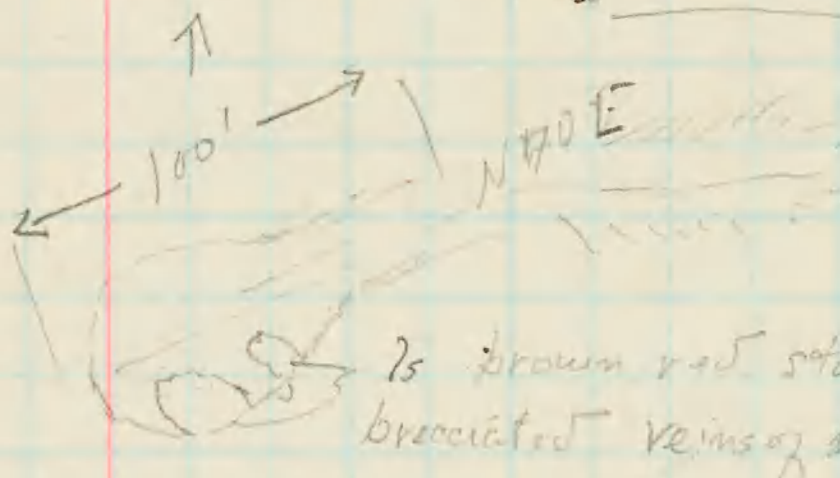 100'
N 70 E
ls brown red
brecciated veins of